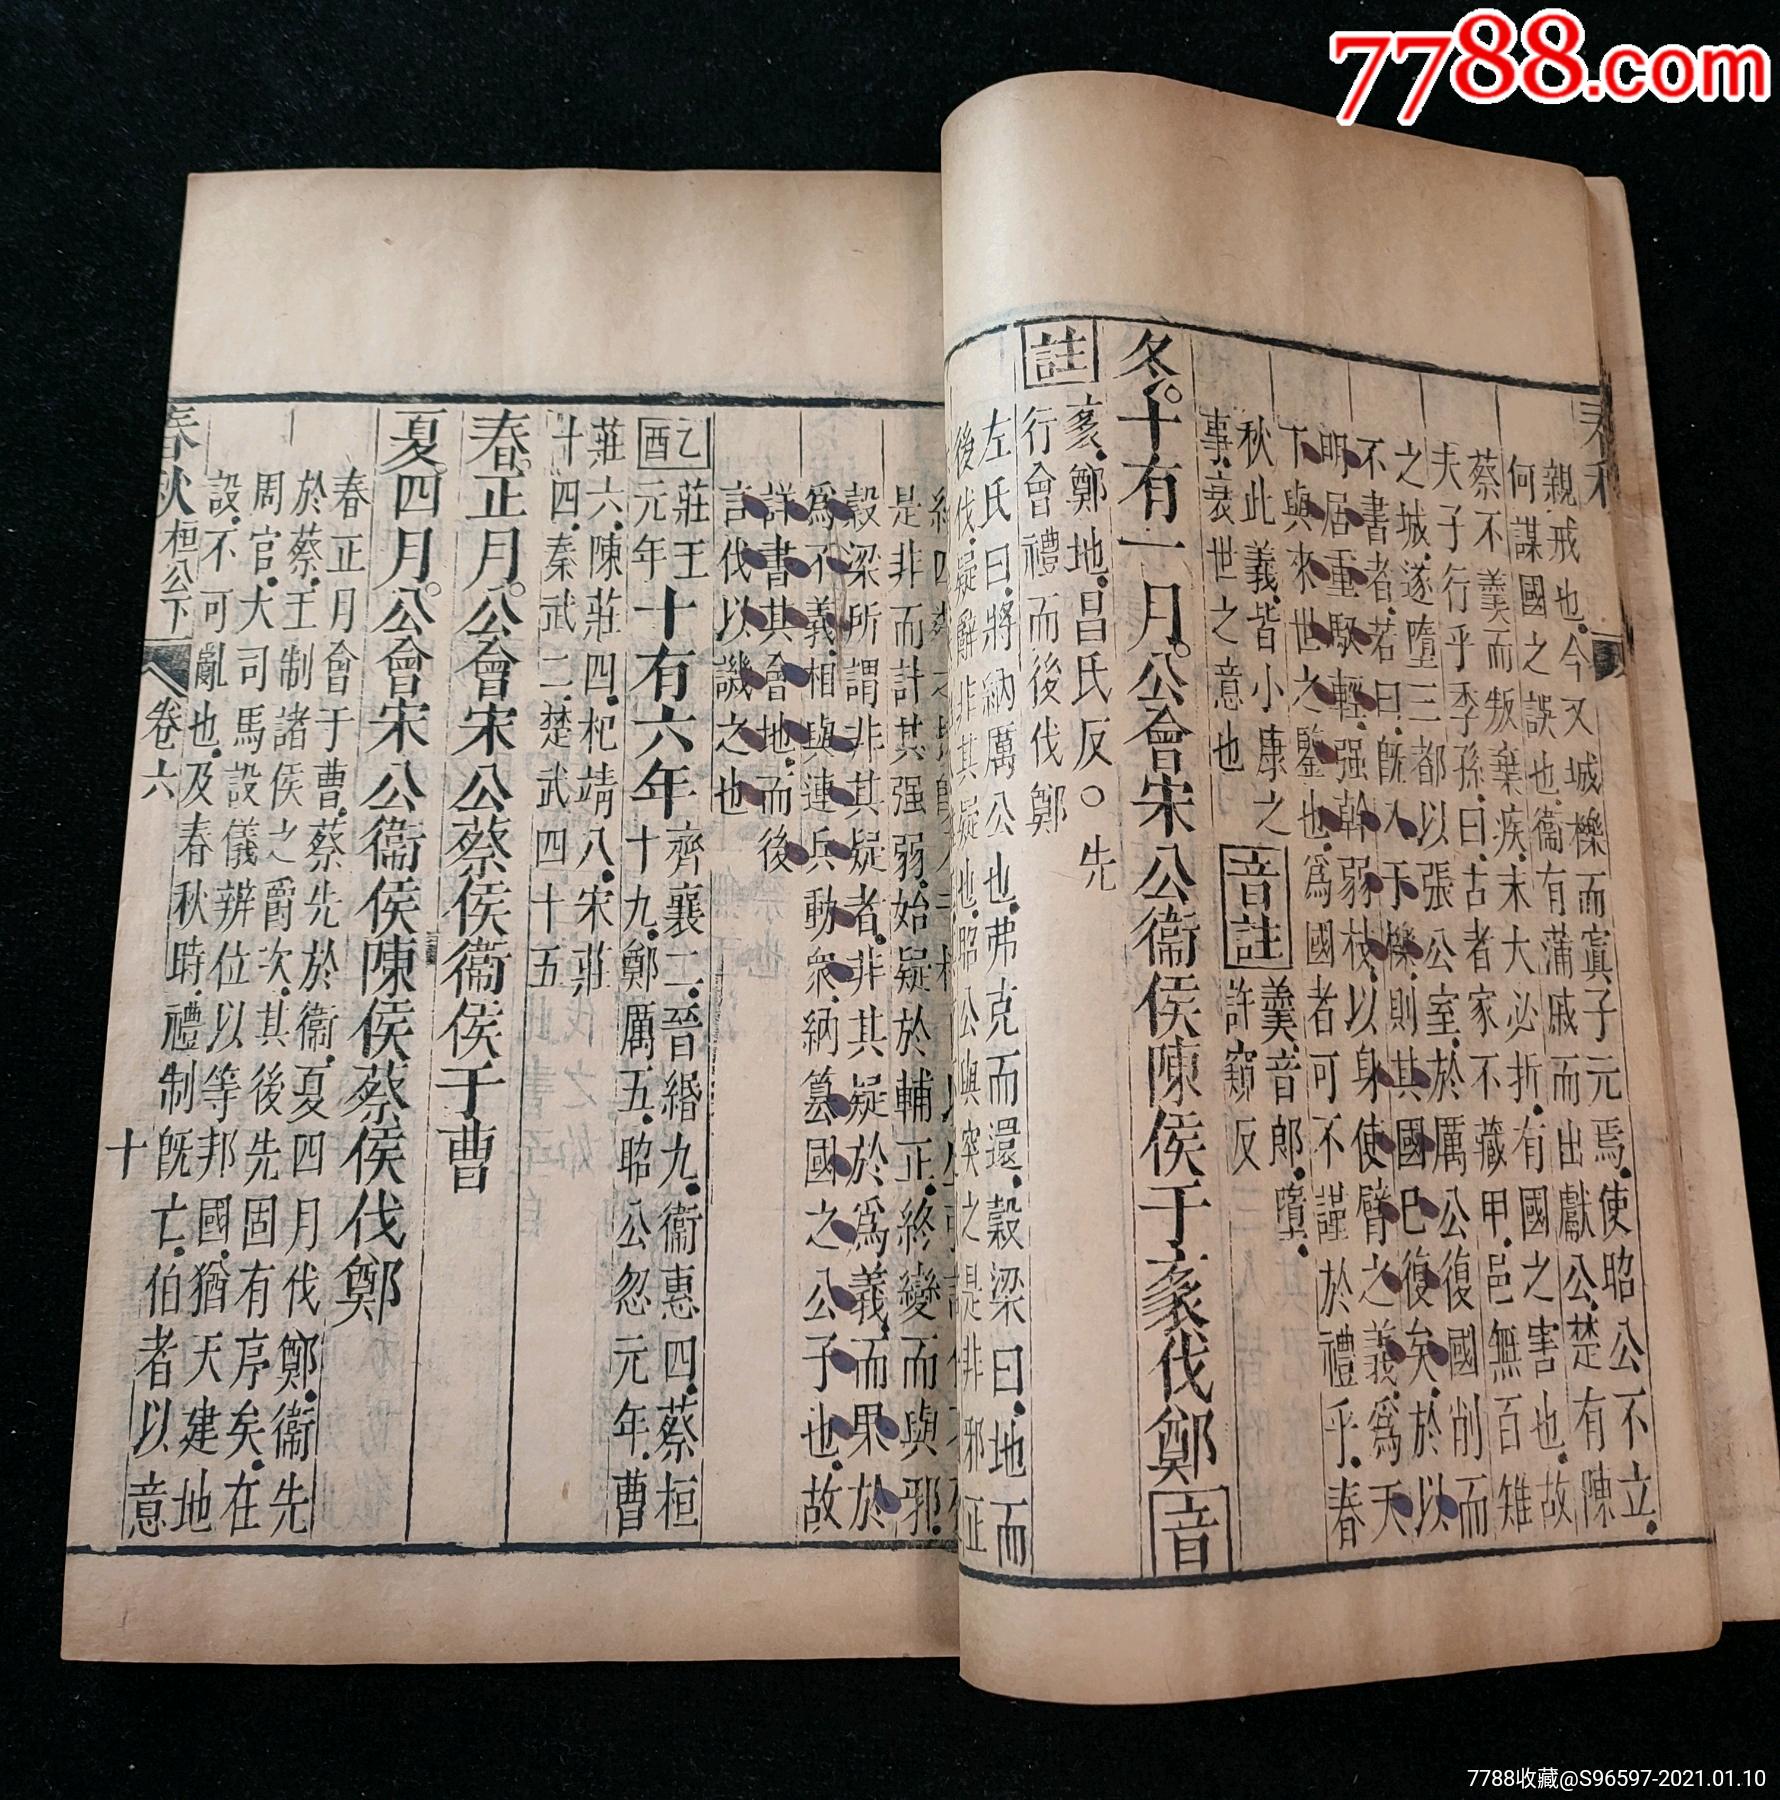 7788.com
春秋
親戒也今又城櫟而寘子元焉使昭公不立
何謀國之誤也衞有蒲戚而出獻公楚有陳
蔡不羹而叛棄疾末大必折有國之害也故
夫子行乎季孫曰古者家不藏甲邑無百雉
之城遂墮三都以張公室於厲公復國削而
不書者若曰旣入于櫟則其國已復矣於以
明居重馭輕强幹弱枝以身使臂之義爲天
下與來世之鑒也爲國者可不謹於禮乎春
秋此義皆小康之
事衰世之意也
音註
羹音郎墮
許窺反
冬十有一月公會宋公衞侯陳侯于袲伐鄭
音
註
袲鄭地昌氏反○先
行會禮而後伐鄭
左氏曰將納厲公也弗克而還穀梁曰地而
後伐疑辭非其疑也昭公與突之是非邪正
是非而計其强弱始疑於輔正終變而與邪
穀梁所謂非其疑者非其疑於爲義而果於
爲不義相與連兵動衆納簒國之公子也故
詳書其會地而後
言伐以譏之也
乙酉
莊王
元年
十有六年
齊襄二晉緡九衞惠四蔡桓
十九鄭厲五昭公忽元年曹
莊六陳莊四杞靖八宋莊
十四秦武二楚武四十五
春正月公會宋公蔡侯衞侯于曹
夏四月公會宋公衞侯陳侯蔡侯伐鄭
春正月會于曹蔡先於衞夏四月伐鄭衞先
於蔡王制諸侯之爵次其後先固有序矣在
周官大司馬設儀辨位以等邦國猶天建地
設不可亂也及春秋時禮制旣亡伯者以意
春秋
桓公下
卷六
十
7788收藏@S96597-2021.01.10